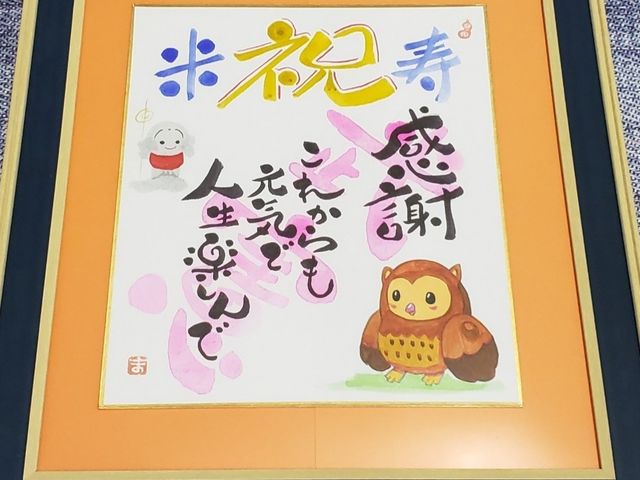 米祝寿
感謝
これからも
元気で
人生楽しんで
ま